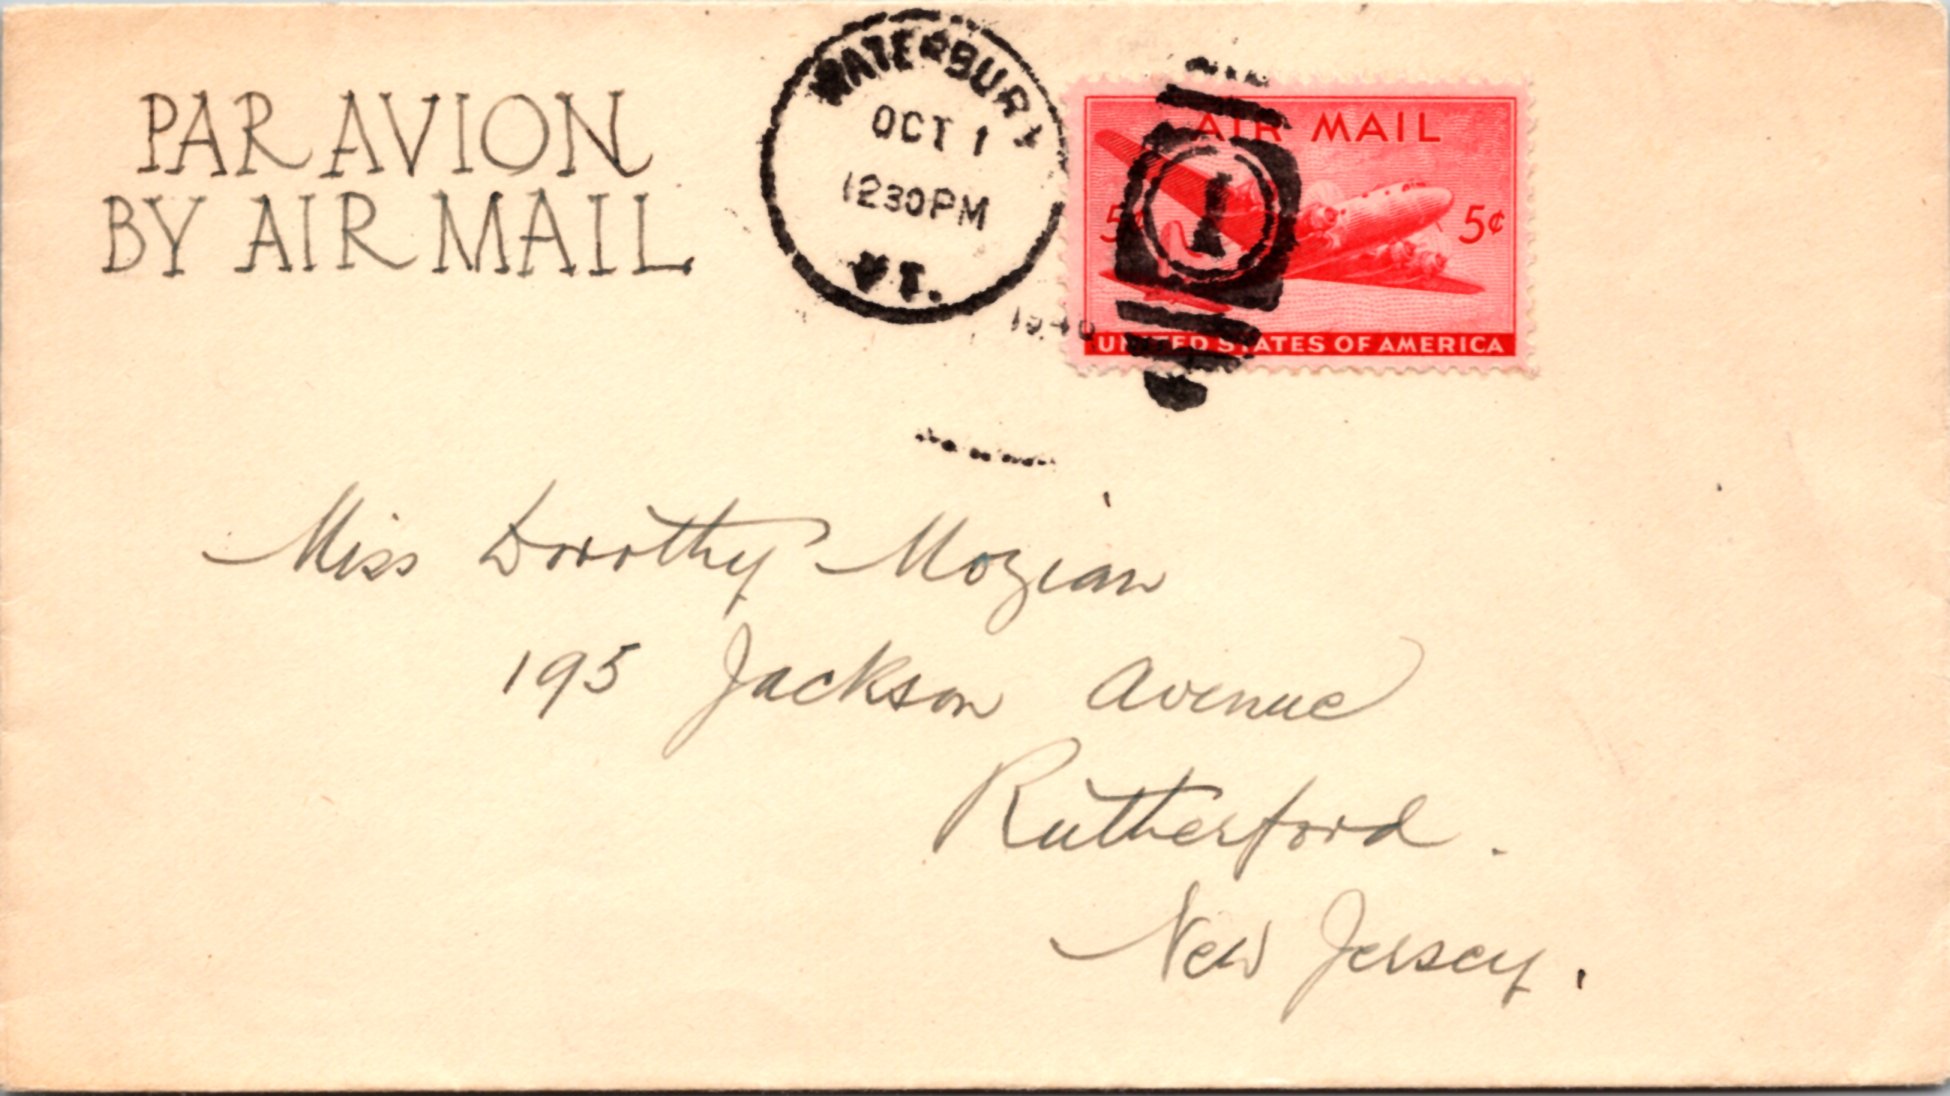 PAR AVION
BY AIR MAIL
WATERBURY
OCT 1
1230PM
VT.
AIR MAIL
5¢ 5¢
1
UNITED STATES OF AMERICA
Miss Dorothy Mozian
195 Jackson Avenue
Rutherford.
New Jersey.